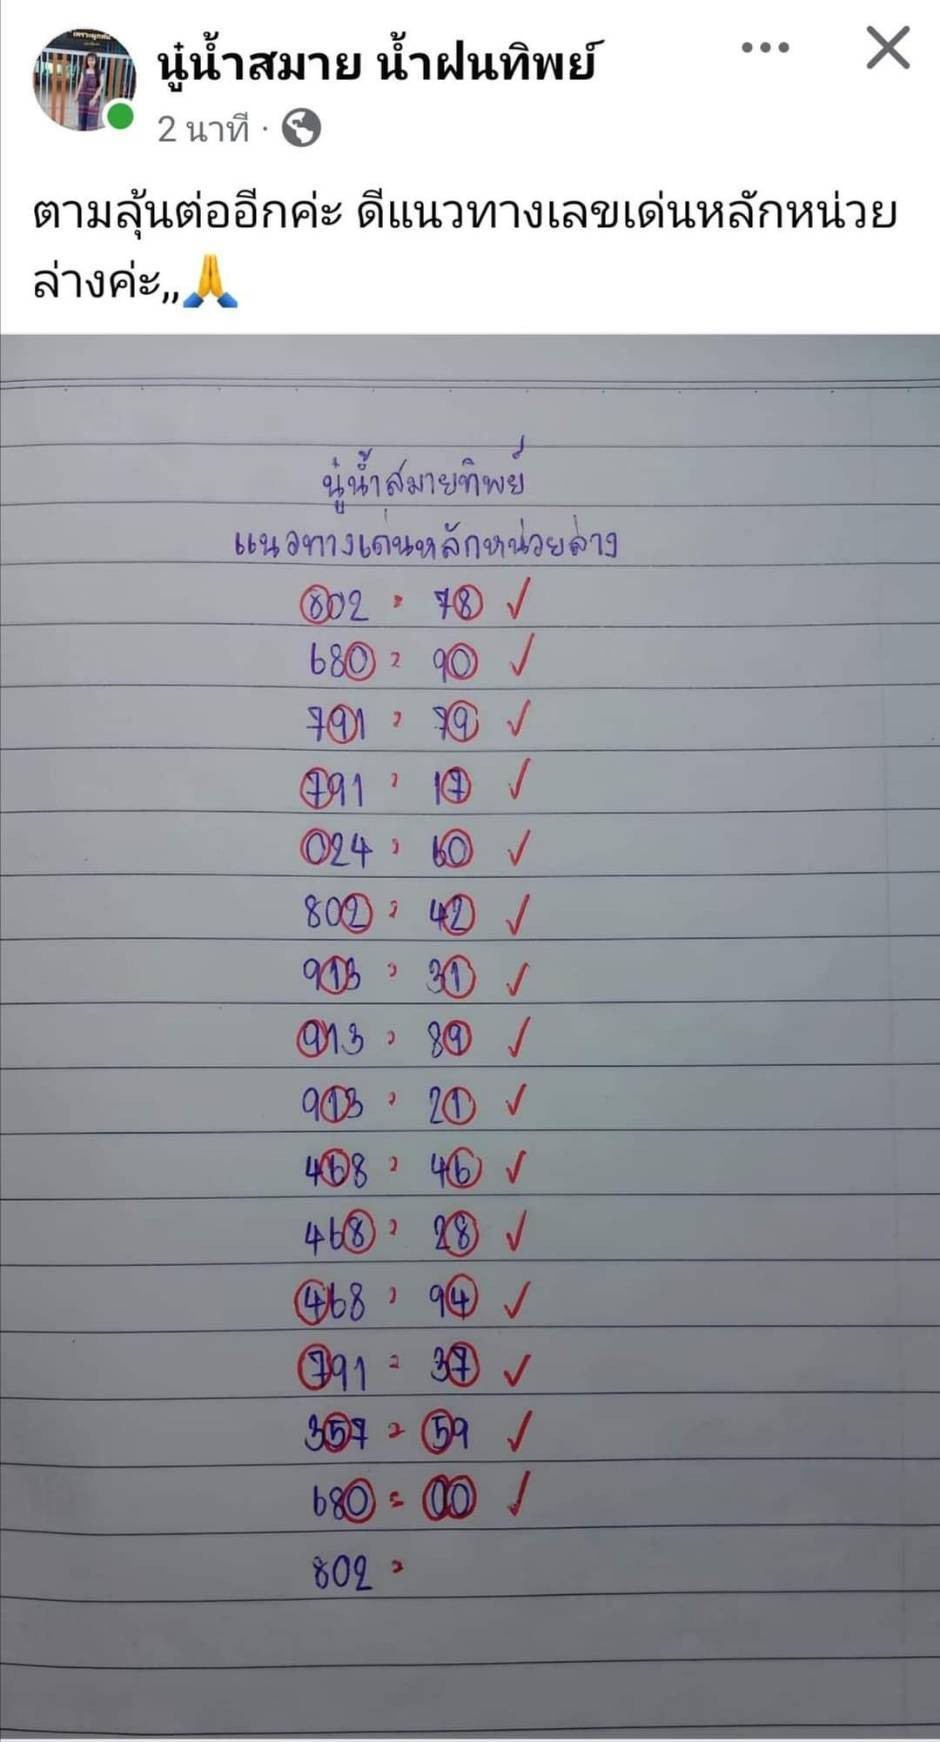 นู๋น้ำสมาย น้ำฝนทิพย์
2 นาที ·
ตามลุ้นต่ออีกค่ะ ดีแนวทางเลขเด่นหลักหน่วย
ล่างค่ะ,,🙏
นู๋น้ำสมายทิพย์
แนวทางเด่นหลักหน่วยล่าง
802 = 78 ✓
680 = 90 ✓
791 = 79 ✓
791 = 17 ✓
024 = 60 ✓
802 = 42 ✓
913 = 31 ✓
913 = 89 ✓
913 = 21 ✓
468 = 46 ✓
468 = 28 ✓
468 = 94 ✓
791 = 37 ✓
357 = 59 ✓
680 = 00 ✓
802 =